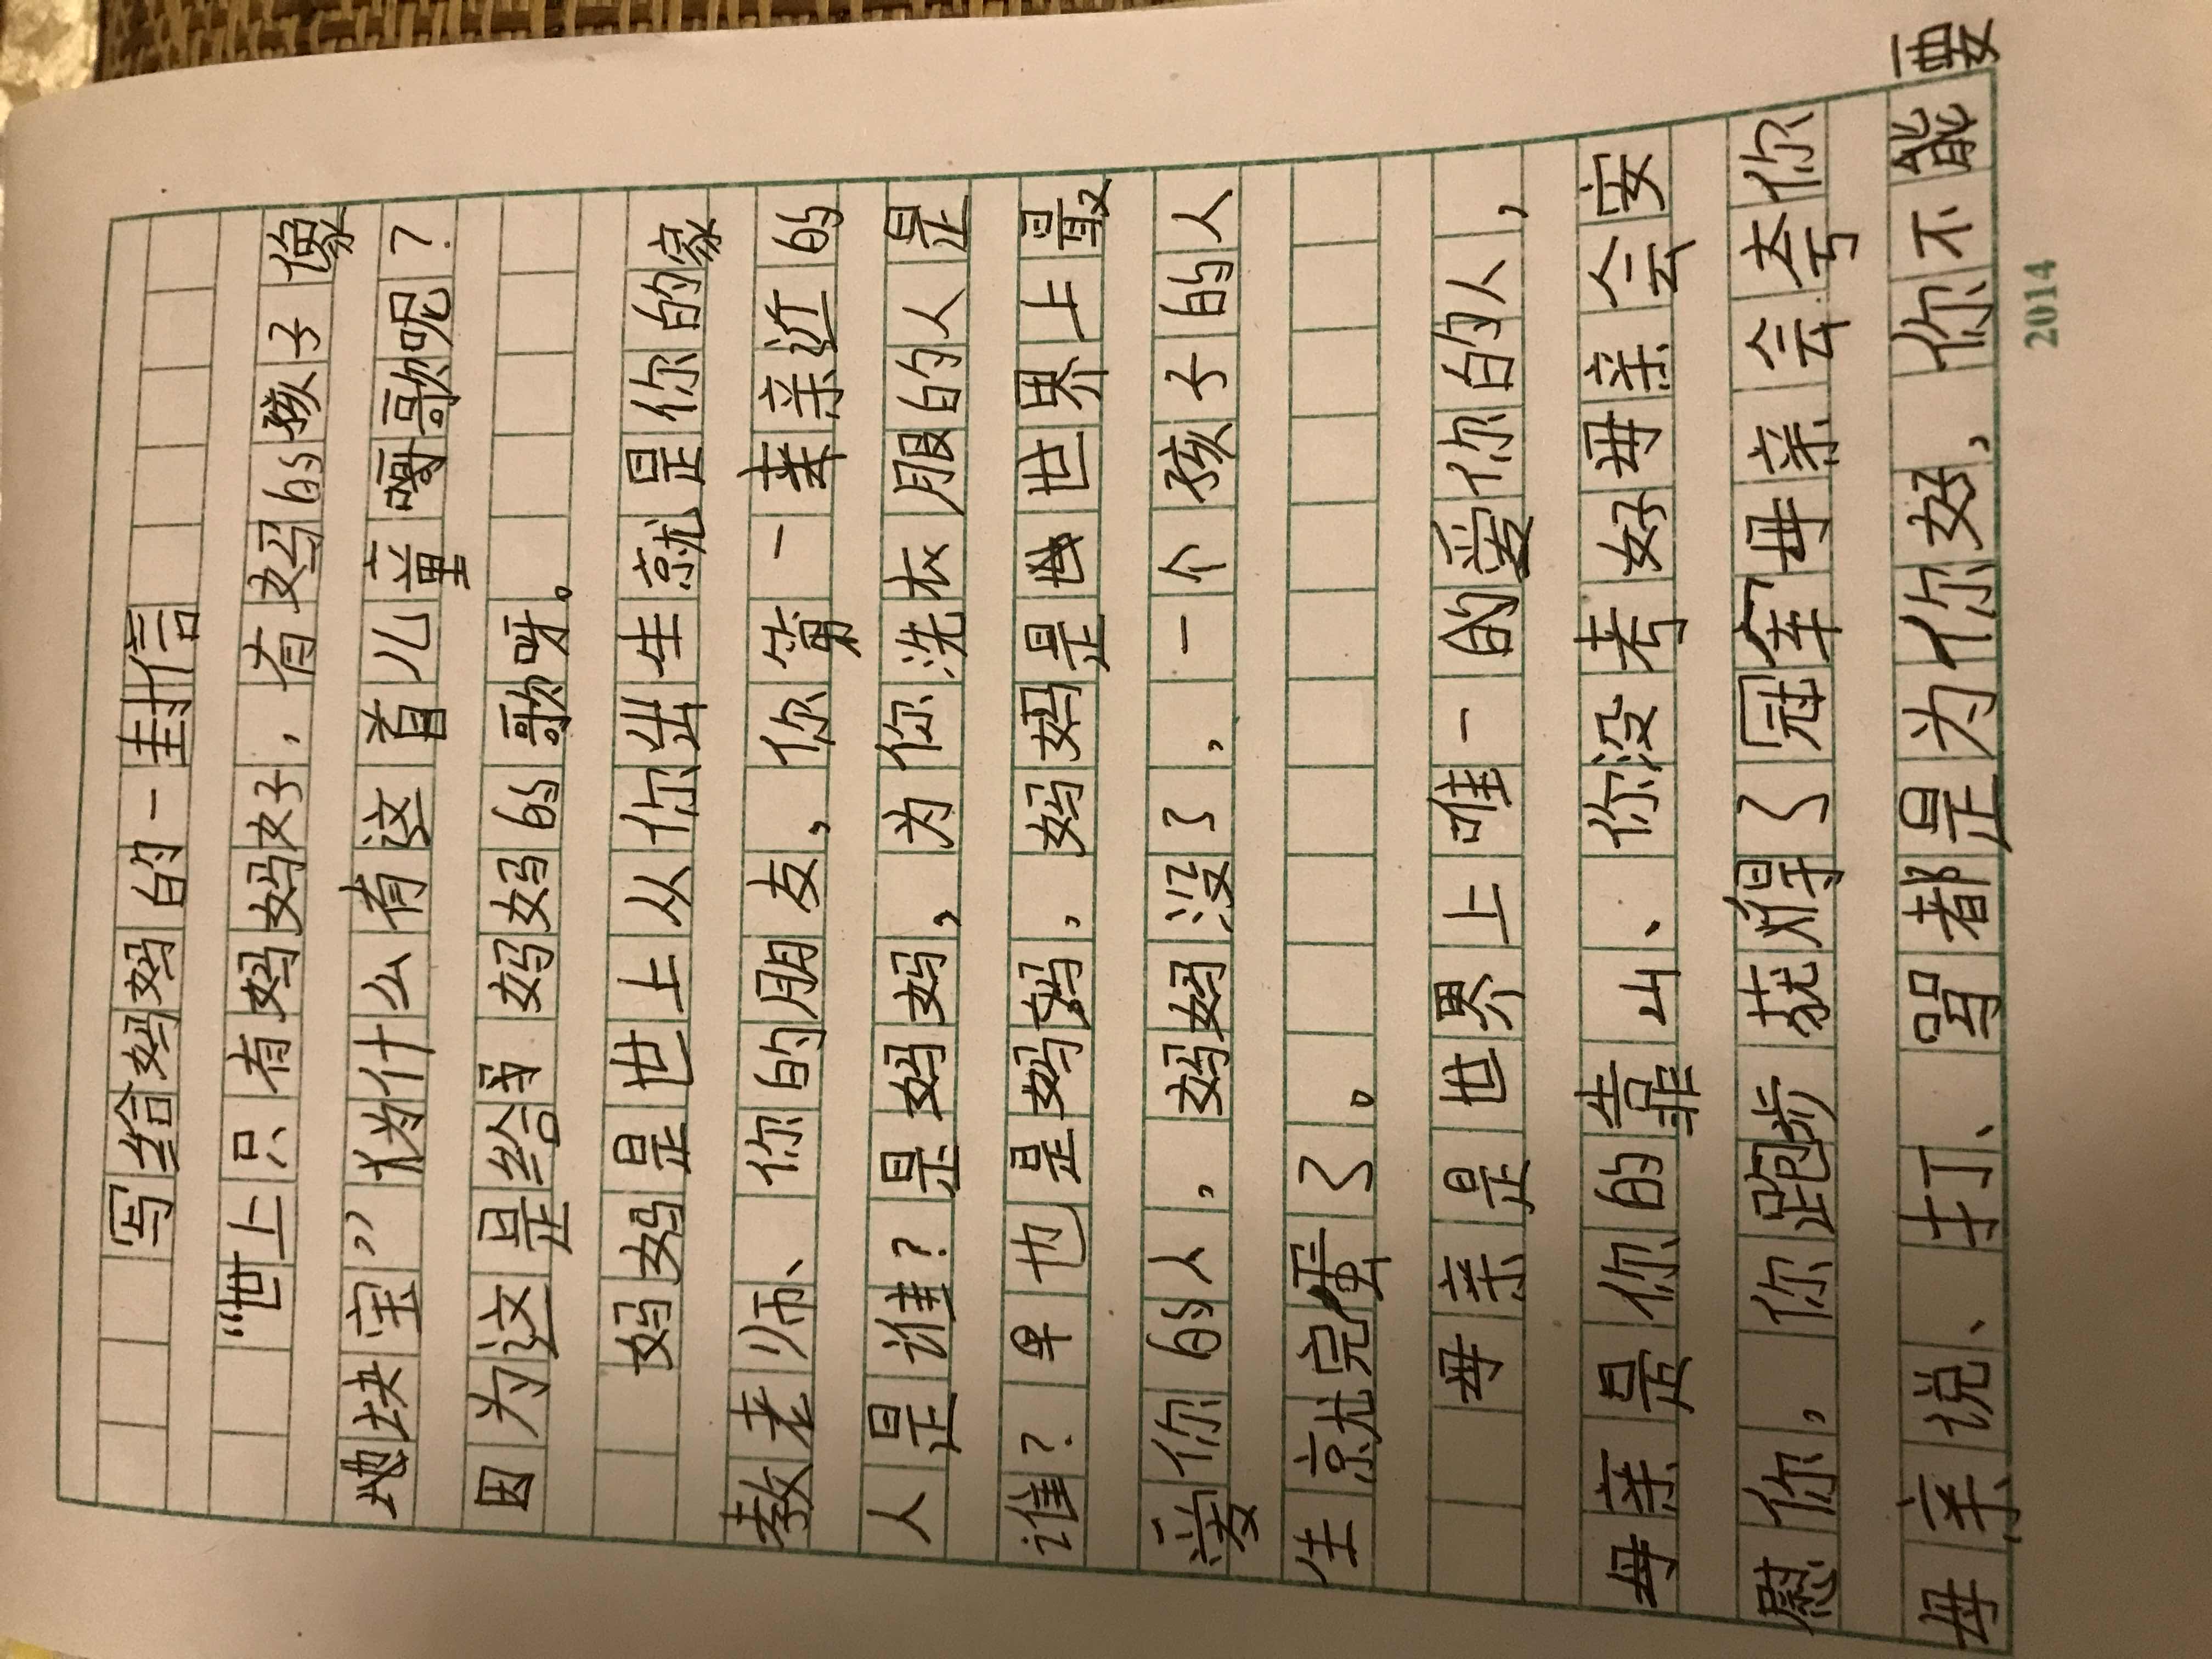 写给妈妈的一封信
“世上只有妈妈好，有妈的孩子像
地块宝”为什么有这首儿童嚼歌呢？
因为这是给等妈妈的歌呀。
妈妈是世上从你出生就是你的家
教老师、你的朋友，你第一亲亲近的
人是谁？是妈妈，为你洗衣服的人是
谁？早也是妈妈，妈妈是世世界上最
爱你的人，妈妈没了，一个孩子的人
生就完蛋了。
母亲是世界上唯一的爱你的人，
母亲是你的靠山、你没考好母亲会安
慰你，你跑步获得了冠军母亲会夸你
母亲说、打、骂都是为你好，你不能要
2014